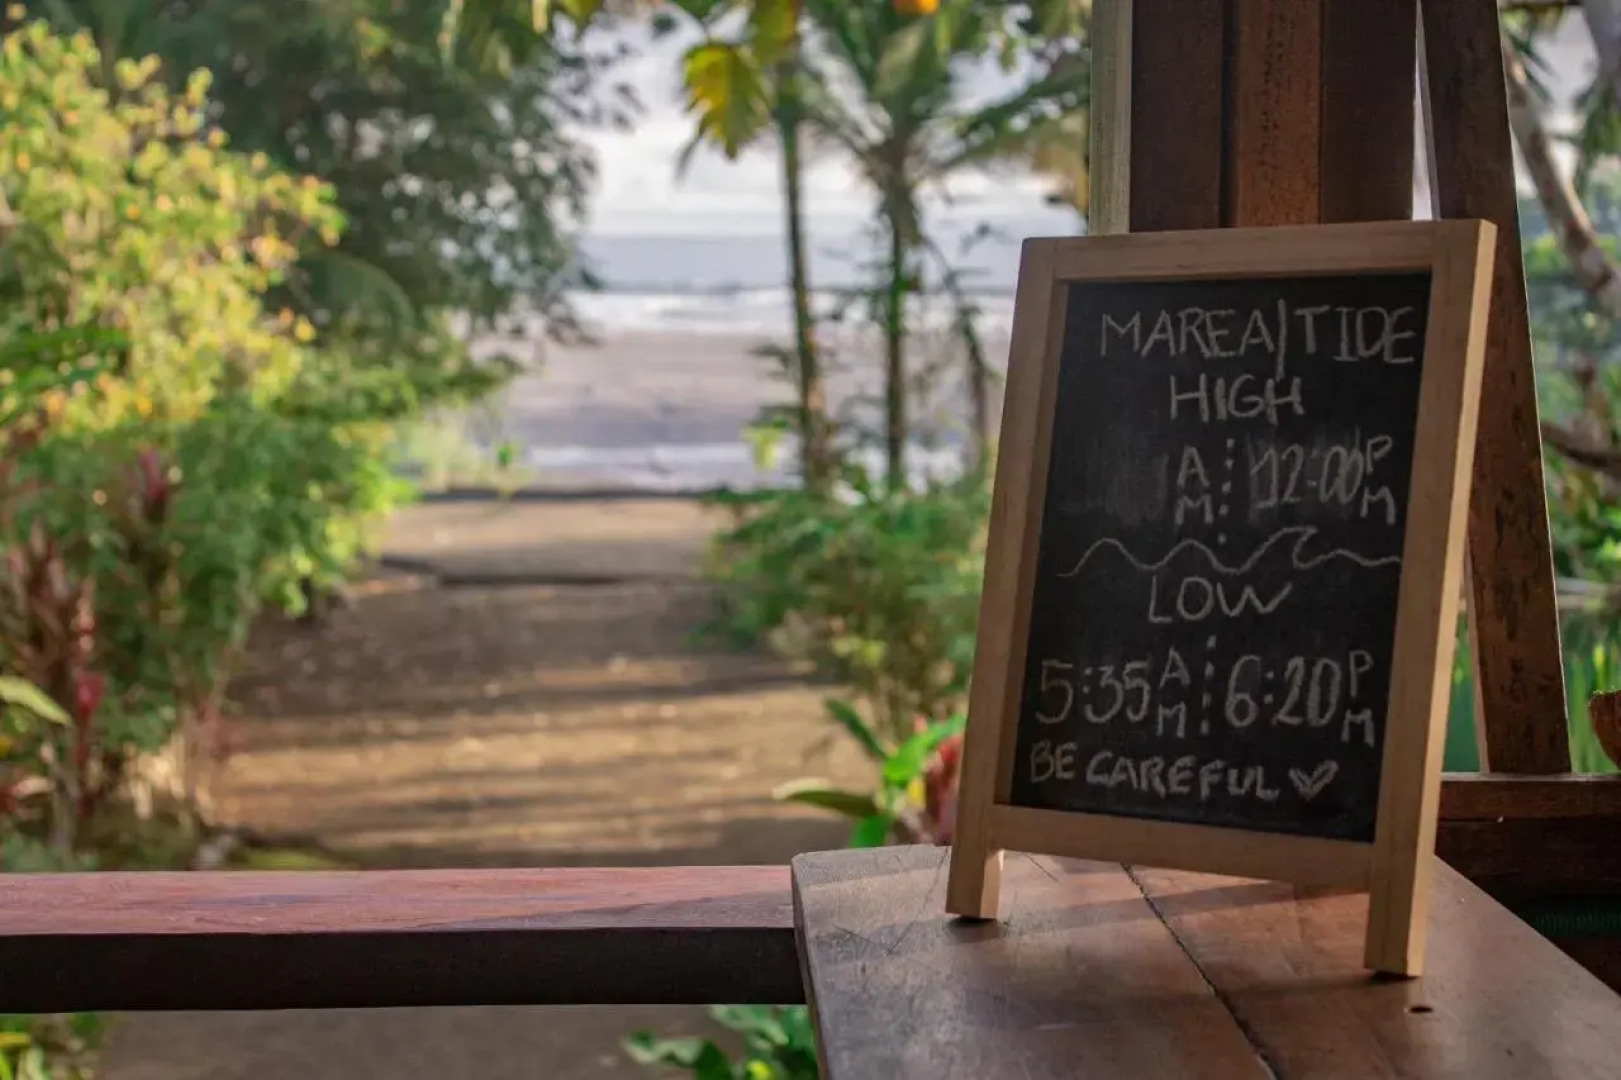 MAREA/TIDE
HIGH
AM 12:00 PM
LOW
5:35 AM 6:20 PM
BE CAREFUL